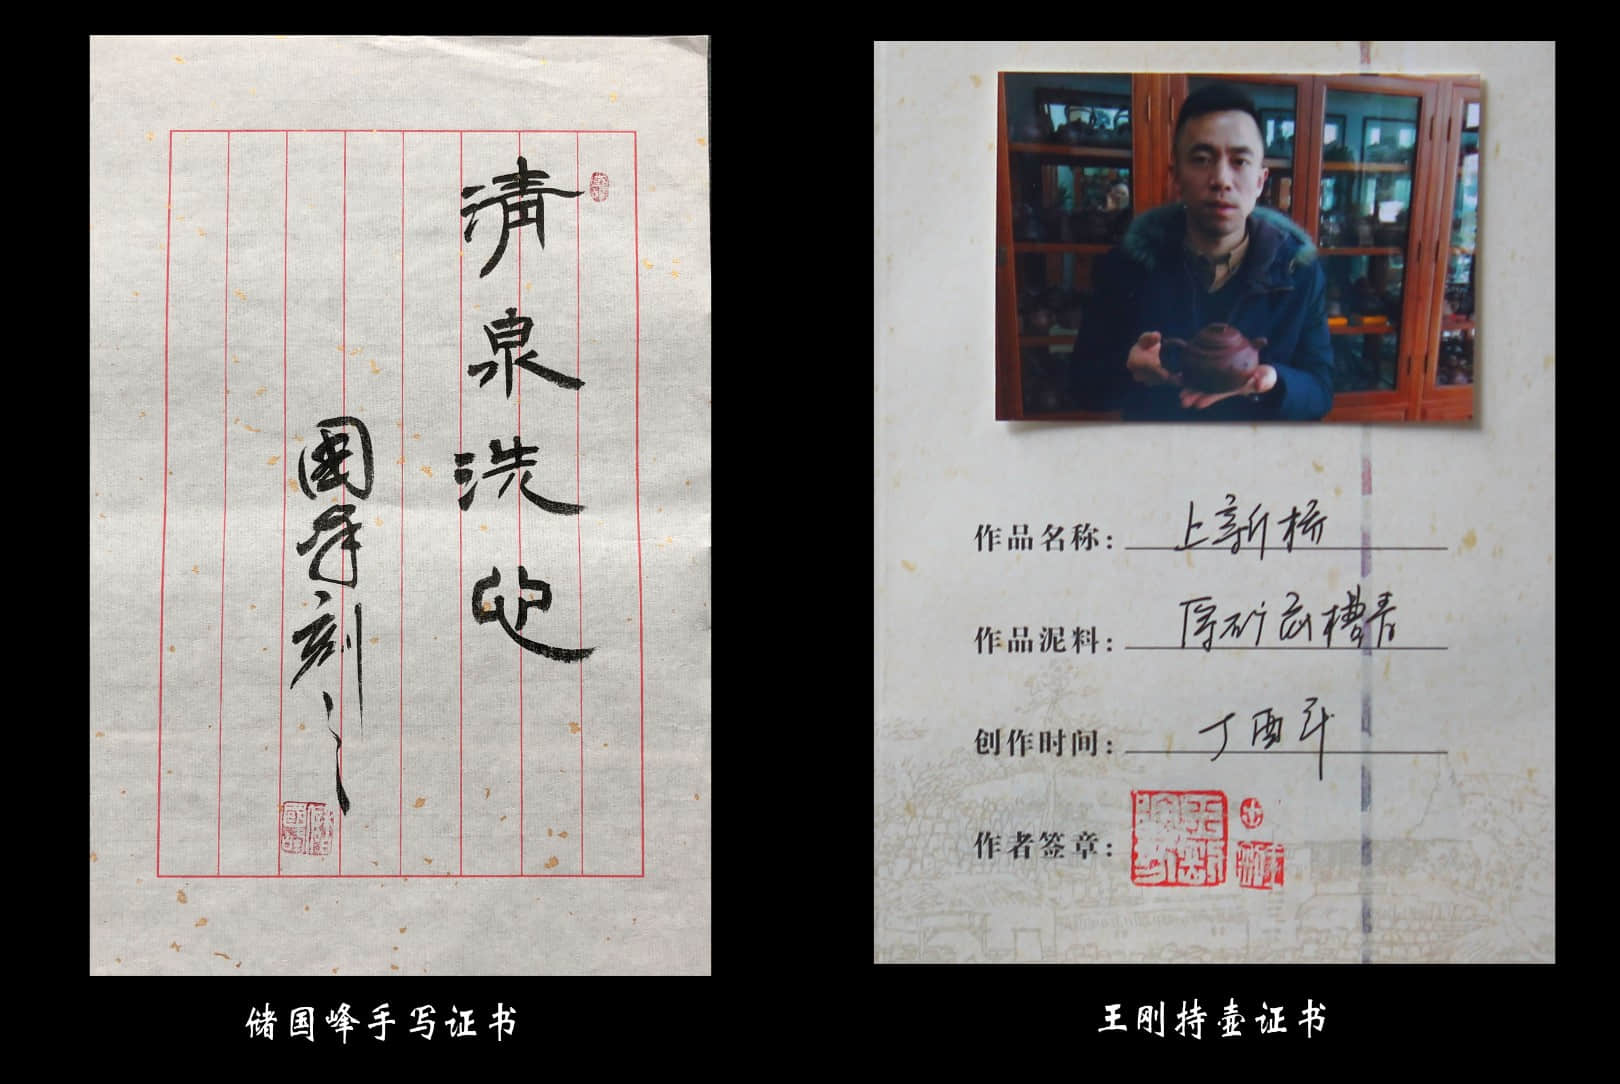 清泉洗心
国峰刻之
储国峰手写证书
作品名称：上新桥
作品泥料：原矿底槽青
创作时间：丁酉年
作者签章：
王刚持壶证书